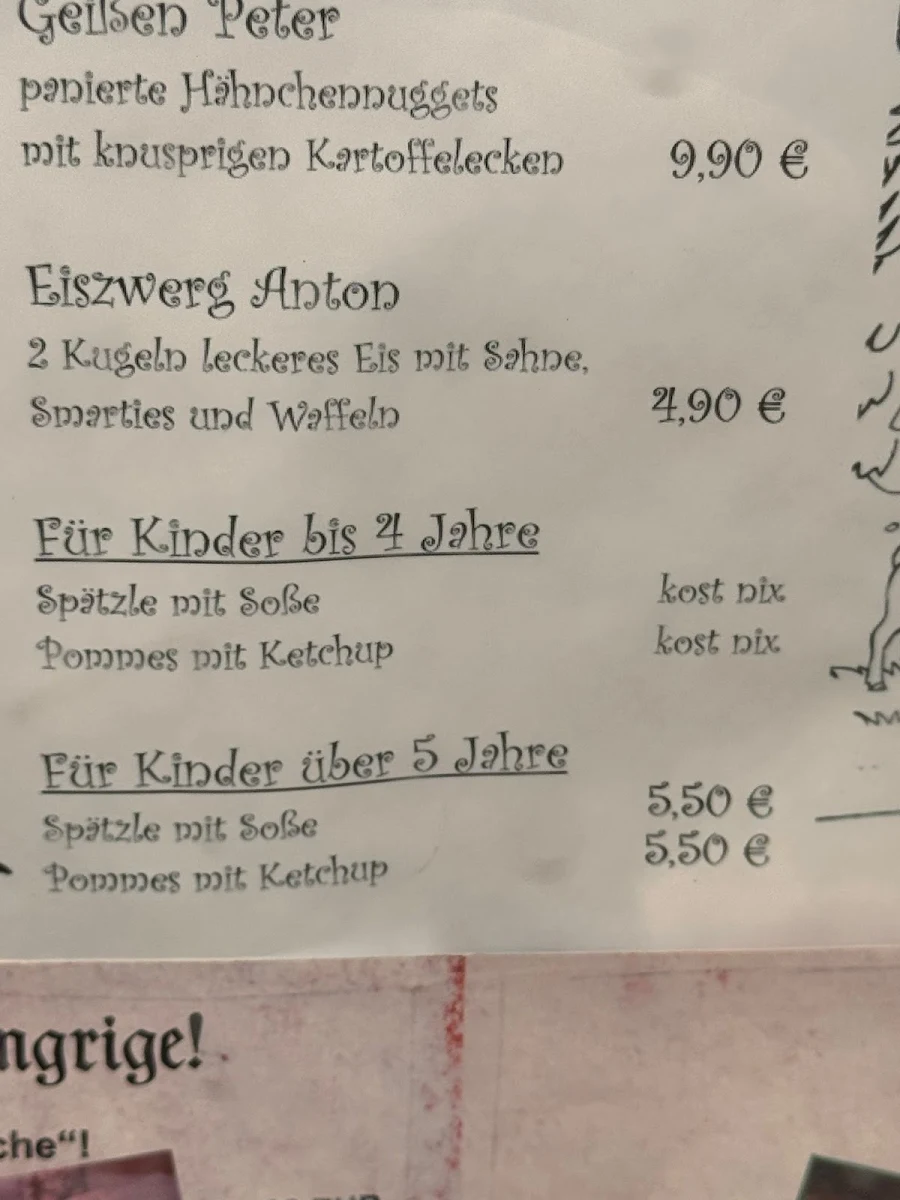 Geißen Peter
panierte Hähnchennuggets
mit knusprigen Kartoffelecken 9,90 €
Eiszwerg Anton
2 Kugeln leckeres Eis mit Sahne,
Smarties und Waffeln 4,90 €
Für Kinder bis 4 Jahre
Spätzle mit Soße kost nix
Pommes mit Ketchup kost nix
Für Kinder über 5 Jahre
Spätzle mit Soße 5,50 €
Pommes mit Ketchup 5,50 €
ngrige!
che“!